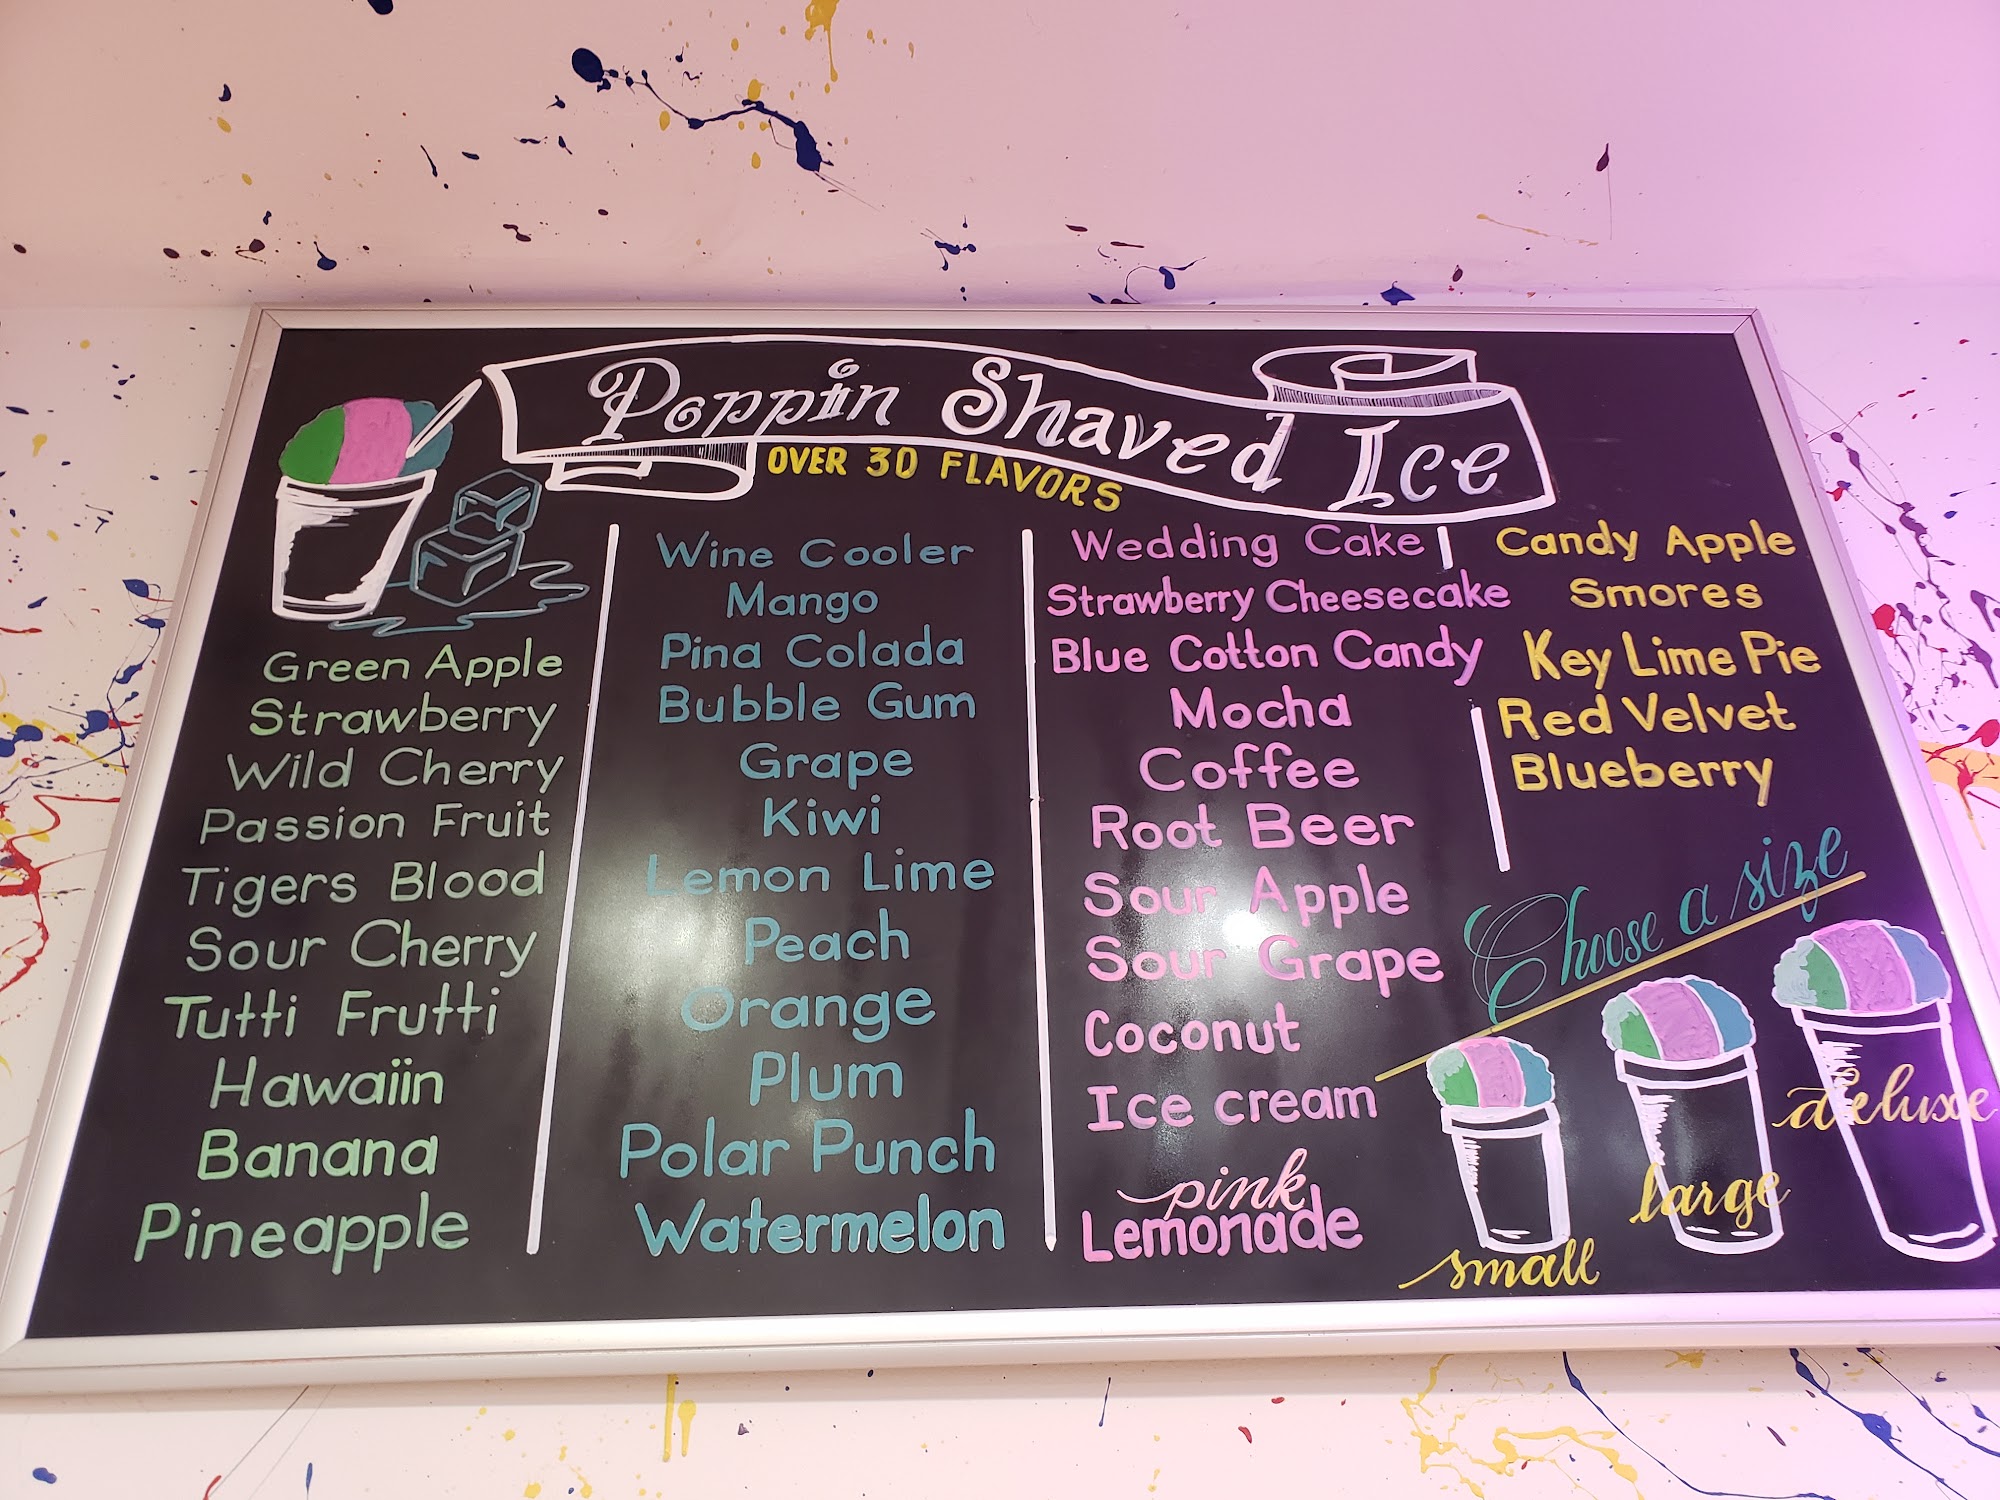 Poppin Shaved Ice
OVER 30 FLAVORS
Green Apple
Strawberry
Wild Cherry
Passion Fruit
Tigers Blood
Sour Cherry
Tutti Frutti
Hawaiin
Banana
Pineapple
Wine Cooler
Mango
Pina Colada
Bubble Gum
Grape
Kiwi
Lemon Lime
Peach
Orange
Plum
Polar Punch
Watermelon
Wedding Cake
Strawberry Cheesecake
Blue Cotton Candy
Mocha
Coffee
Root Beer
Sour Apple
Sour Grape
Coconut
Ice cream
pink
Lemonade
Candy Apple
Smores
Key Lime Pie
Red Velvet
Blueberry
Choose a size
small
large
deluxe